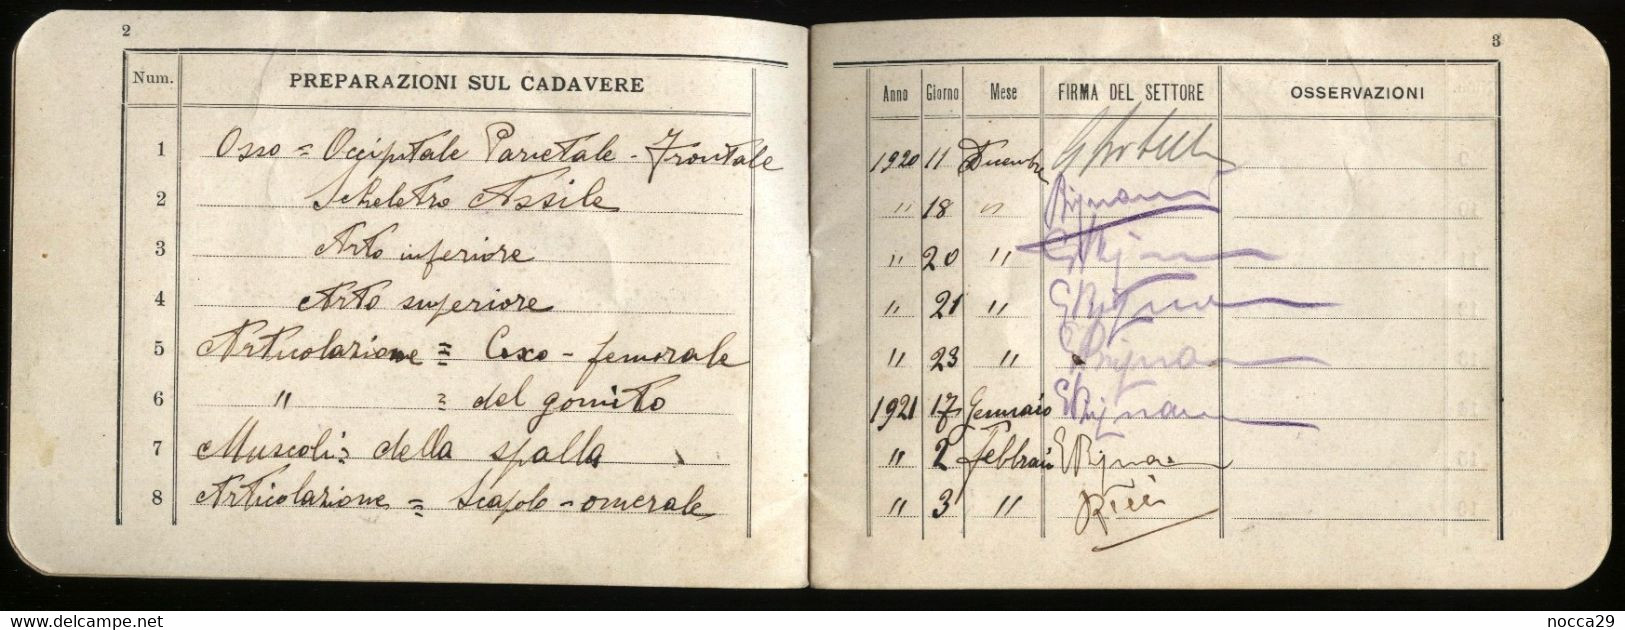 2
Num. PREPARAZIONI SUL CADAVERE
1 Osso = Occipitale Parietale - Frontale
2 Scheletro Assile
3 Arto inferiore
4 Arto superiore
5 Articolazione = Coxo - femorale
6 " = del gomito
7 Muscoli = della spalla
8 Articolazione = Scapolo - omerale
3
Anno Giorno Mese FIRMA DEL SETTORE OSSERVAZIONI
1920 11 Dicembre
" 18 " Bignami
" 20 "
" 21 "
" 23 "
1921 17 Gennaio
" 2 Febbraio
" 3 "
delcampe.net
nocca29